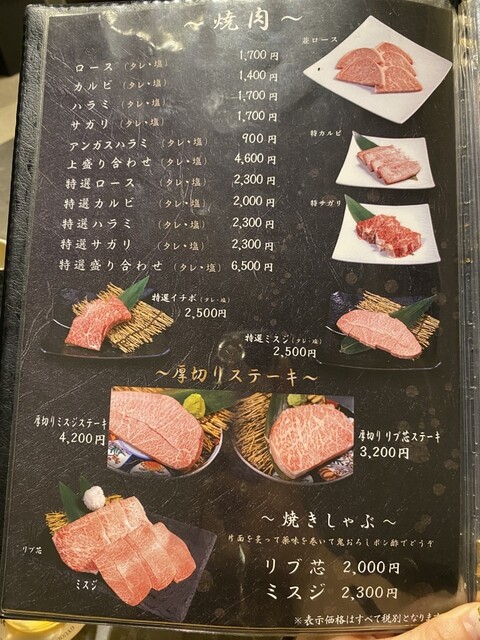 ～焼肉～
ロース（タレ・塩） 1,700円
カルビ（タレ・塩） 1,400円
ハラミ（タレ・塩） 1,700円
サガリ（タレ・塩） 1,700円
アンガスハラミ（タレ・塩） 900円
上盛り合わせ（タレ・塩） 4,600円
特選ロース（タレ・塩） 2,300円
特選カルビ（タレ・塩） 2,000円
特選ハラミ（タレ・塩） 2,300円
特選サガリ（タレ・塩） 2,300円
特選盛り合わせ（タレ・塩） 6,500円
ロース
特カルビ
特サガリ
特選イチボ（タレ・塩）
2,500円
特選ミスジ（タレ・塩）
2,500円
～厚切りステーキ～
厚切りミスジステーキ
4,200円
厚切り リブ芯ステーキ
3,200円
リブ芯
ミスジ
～焼きしゃぶ～
片面を炙って薬味を巻いて鬼おろしポン酢でどうぞ
リブ芯 2,000円
ミスジ 2,300円
※表示価格はすべて税別となります